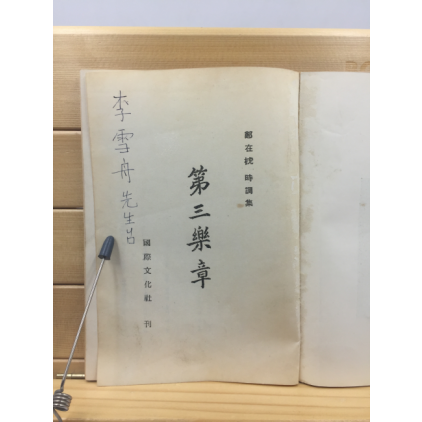 鄭在琥 時調集
第三樂章
國際文化社 刊
李雪舟先生